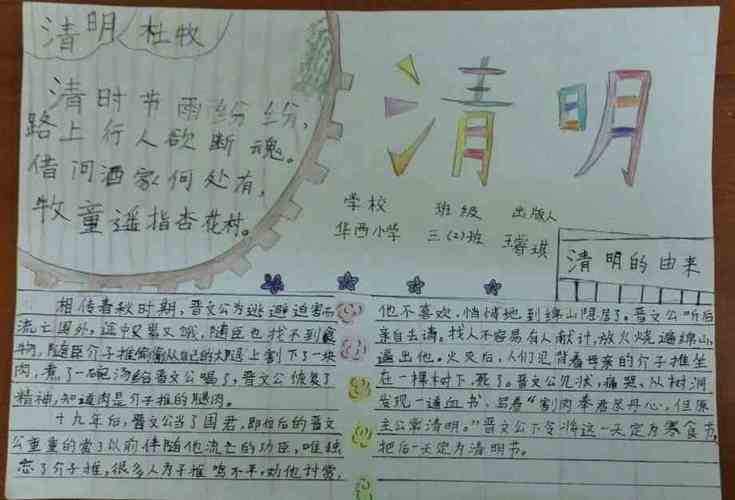 清明 杜牧
清时节雨纷纷，
路上行人欲断魂。
借问酒家何处有，
牧童遥指杏花村。
清明
学校 班级 出版人
华西小学 三(2)班 王睿琪
清明的由来
相传春秋时期，晋文公为逃避迫害而
流亡国外，途中又累又饿，随臣也找不到食
物，随臣介子推偷偷从自己的大腿上割下了一块
肉，煮了一碗汤给晋文公喝了，晋文公恢复了
精神，知道肉是介子推的腿肉。
十九年后，晋文公当了国君，即位后的晋文
公重重的赏了以前伴随他流亡的功臣，唯独
忘了介子推，很多人为子推鸣不平，劝他讨赏，
他不喜欢，悄悄地到绵山隐居了。晋文公听后
亲自去请。找人不容易有人献计，放火烧遍绵山，
逼出他。火灭后，人们见背着母亲的介子推坐
在一棵树下死了。晋文公见状，痛哭、从树洞
发现一遗血书，写着“割肉奉君尽丹心，但愿
主公常清明。”晋文公下令将这一天定为寒食节
把后一天定为清明节。